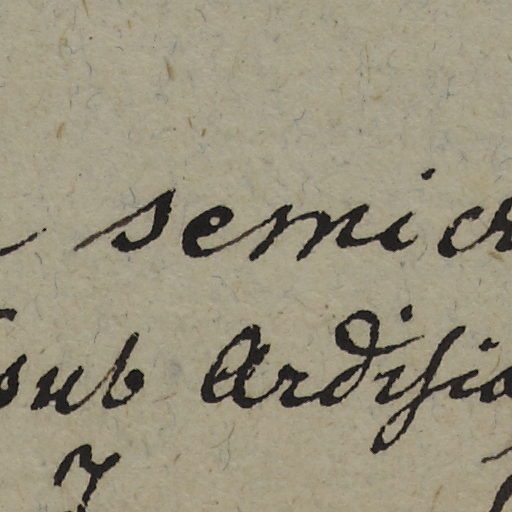 semicr
sub Ardisia